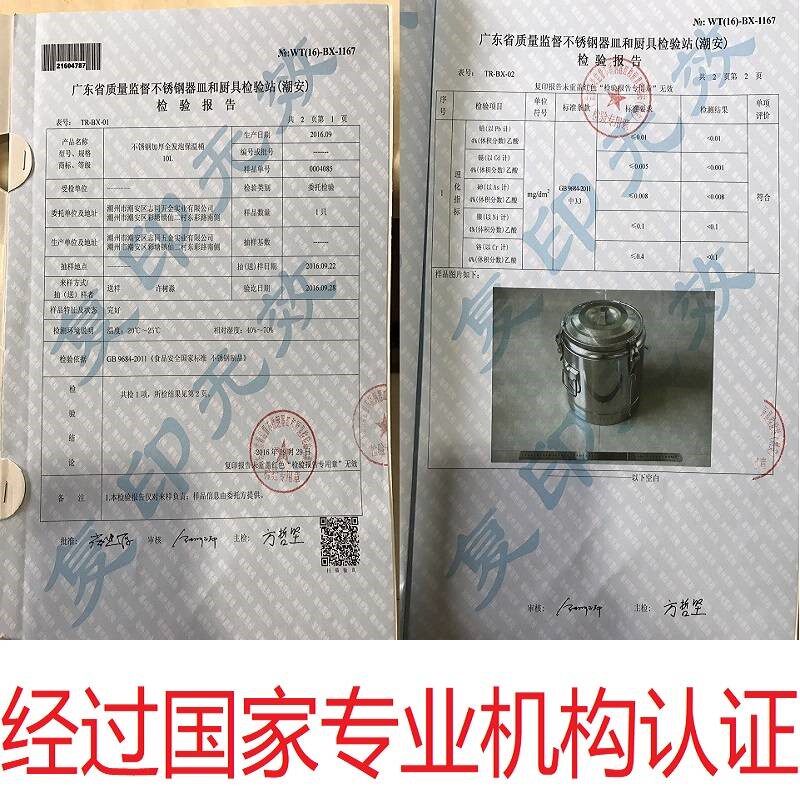 №:WT(16)-BX-1167
21604787
广东省质量监督不锈钢器皿和厨具检验站(潮安)
检 验 报 告
表号: TR-BX-01
共 2 页第 1 页
产品名称
型号、规格
商标、等级
不锈钢加厚全发泡保温桶
10L
生产日期 2016.09
编号或批号 -------
样品单号 0004085
受检单位 -------
检验类别 委托检验
委托单位及地址
潮州市潮安区志同五金实业有限公司
潮州市潮安区彩塘镇仙二村东彩路南侧
样品数量 1 只
生产单位及地址
潮州市潮安区志同五金实业有限公司
潮州市潮安区彩塘镇仙二村东彩路南侧
抽样基数 -------
抽样地点 -------
抽(送)样日期 2016.09.22
来样方式/
抽(送)样者
送样 许树淼
验讫日期 2016.09.28
样品特征及状态 完好
检测环境说明 温度: 20℃~25℃ 相对湿度: 40%~70%
检验依据 GB 9684-2011《食品安全国家标准 不锈钢制品》
检验结论
共检 1 项，所检结果见第 2 页。
2016 年 09 月 29 日
复印报告未重盖红色“检验报告专用章”无效
备 注 1.本检验报告仅对来样负责；样品信息由委托方提供。
批准:
审核
主检: 方哲坚
扫描验真
复印无效
№: WT(16)-BX-1167
广东省质量监督不锈钢器皿和厨具检验站(潮安)
检 验 报 告
表号: TR-BX-02
共 2 页第 2 页
复印报告未重盖红色“检验报告专用章”无效
序号 检验项目 单位符号 标准条款 标准要求 检测结果 单项评价
1 理化指标 mg/dm² GB 9684-2011 中 3.3 符合
铅(以 Pb 计)
4%(体积分数)乙酸 ≤0.01 <0.01
镉(以 Cd 计)
4%(体积分数)乙酸 ≤0.005 <0.001
砷(以 As 计)
4%(体积分数)乙酸 ≤0.008 <0.008
镍(以 Ni 计)
4%(体积分数)乙酸 ≤0.1 <0.1
铬(以 Cr 计)
4%(体积分数)乙酸 ≤0.4 <0.1
样品图片如下:
---以下空白
审核:
主检: 方哲坚
复印无效
经过国家专业机构认证